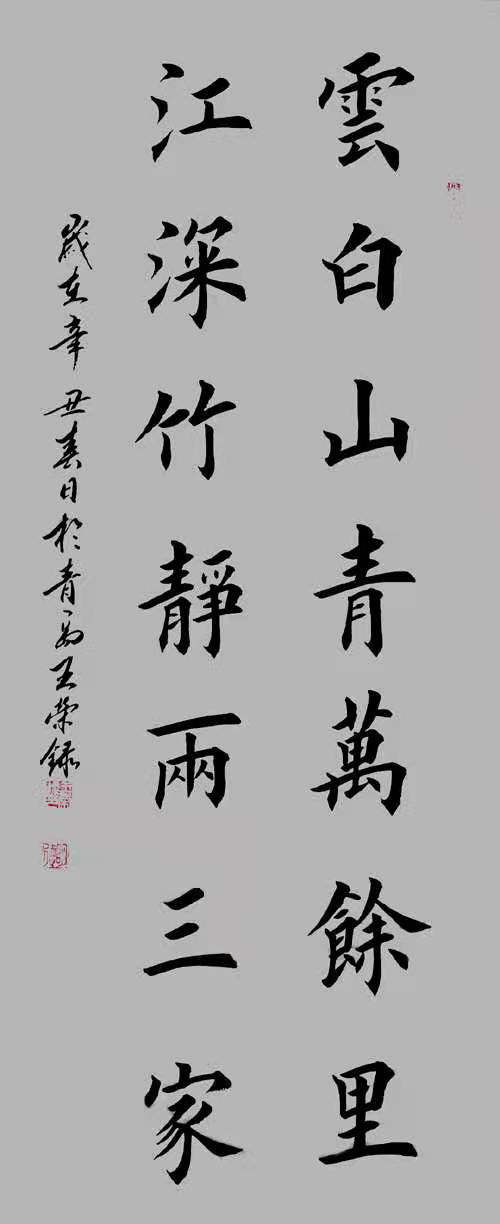 雲白山青萬餘里
江深竹靜兩三家
歲在辛丑春日於青島王榮録